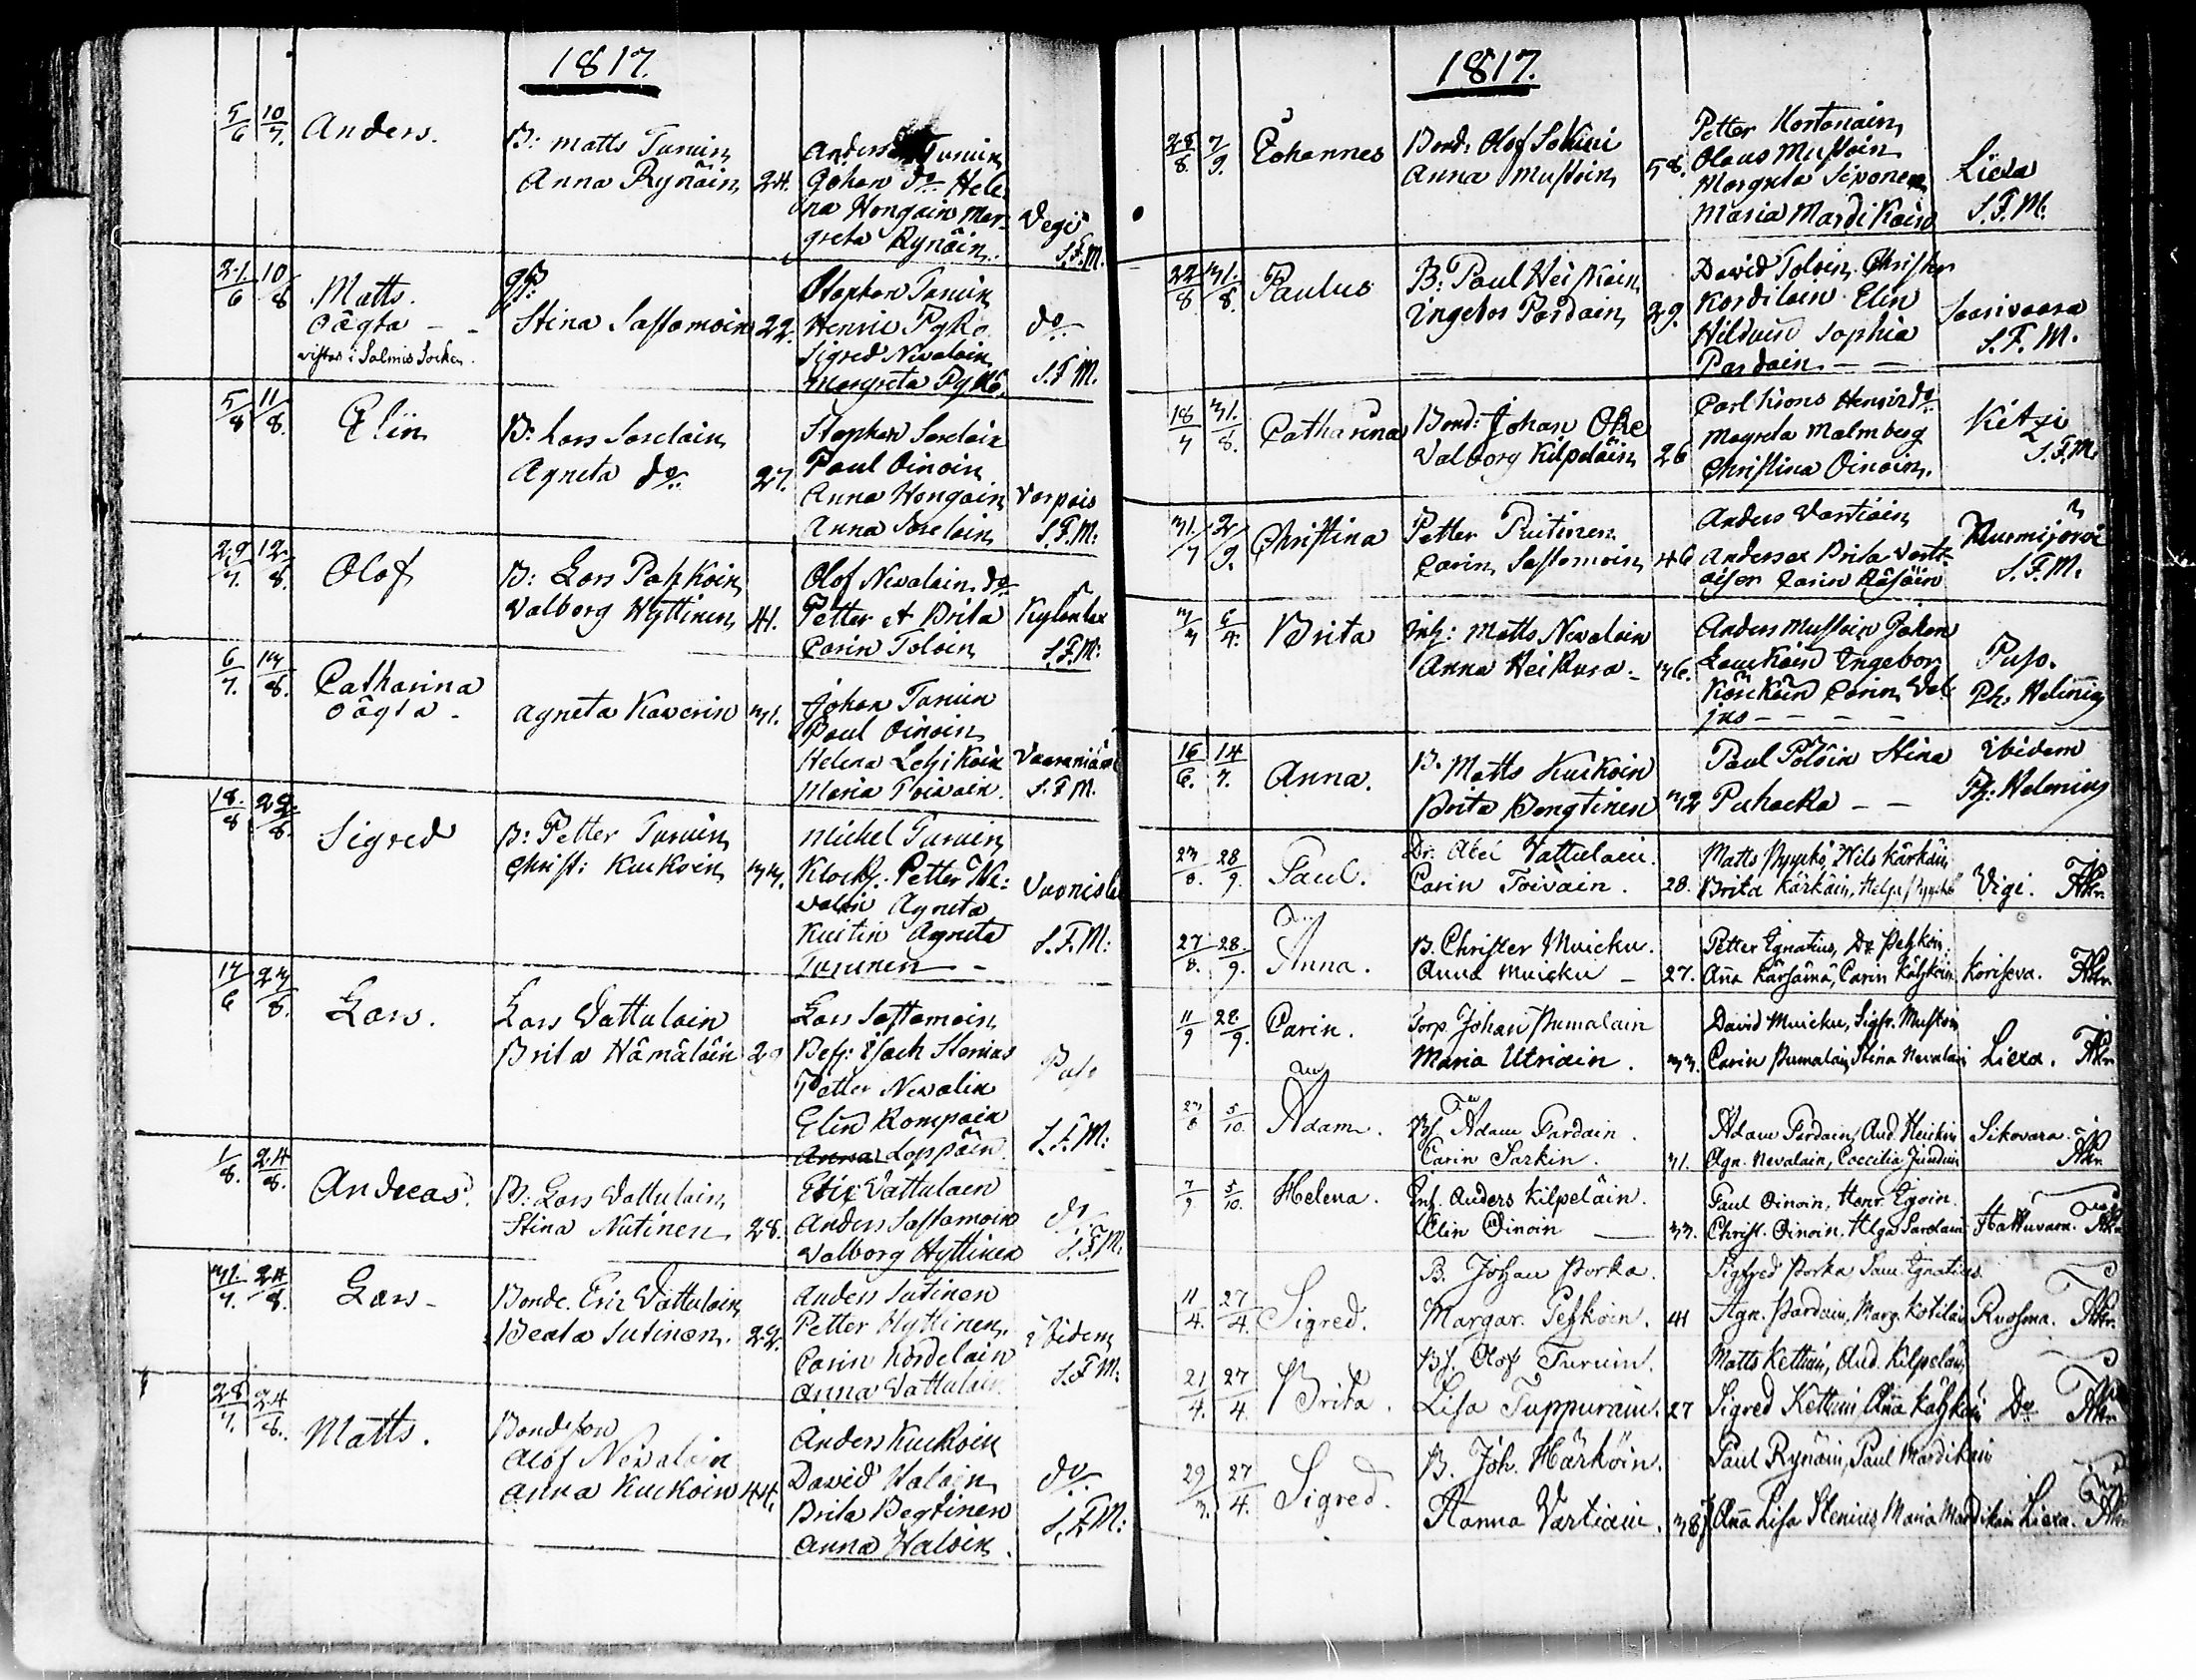 1817.
5/6 10/7. Anders. B: Matts Turuin
Anna Rynäin 24.
Anders Turuin
Johan do Hele
na Hongain Mar-
greta Rynäin.
Vegi
S.F.M.
21/6 10/8 Matts.
Oägta - -
vistas i Salmis Socken.
Stina Sastamoin 22.
Staphan Turuin
Henric Pykö
Sigred Nevalain
Margreta Pykö.
do
S.F.M.
5/8 11/8. Elin
B: Lars Sorelain
Agneta do. 27.
Staphan Sorelain
Paul Oinoin
Anna Hongain
Anna Sorelain
Varpais
S.F.M:
29/7. 12/8. Olof
B: Lars Pasikoin
Valborg Hyttinen 41.
Olof Nevalain do
Petter et Brita
Carin Toloin
Kylänlax
S.F.M:
6/7. 13/8. Catharina
Oägta -
Agneta Kaverin 31.
Johan Turuin
Paul Oinoin
Helena
Maria Toivain.
S.F.M.
18/8 22/8. Sigred
B: Petter Turuin
Christ: Kuckoin 33.
Michel Turuin
Klock. Petter Ne:
valin Agneta
Kuitin Agneta
Turunen -
Vuonisla
S.F.M:
17/6 23/8. Lars.
Lars Vattulain
Brita Hämäläin 29
Lars Sastamoin
Bef: Isach Stenius
Petter Nevalin
Elin Rompain
Anna Loppöin
Puso
S.F.M:
1/8. 24/8. Andreas.
B: Lars Vattulain
Stina Nutinen 28.
Eric Vattulain
Anders Sastamoin
Valborg Hyttinen
do.
S.F.M:
31/7. 24/8. Lars -
Bonde. Eric Vattulain
Beata Sutinen. 22.
Anders Sutinen
Petter Hyttinen
Carin Kordelain
Anna Vattulain
ibidem
S.F.M:
28/7. 24/8. Matts.
Bondeson
Olof Nevalain
Anna Kuckoin 44.
Anders Kuckoin
David Halain
Brita Begtinen
Anna Haloin.
do.
S.F.M:
1817.
28/8. 7/9. Johannes
Bond: Olof Sokui
Anna Mustoin 58.
Petter Kortanain
Olaus Mustoin
Margreta Sivonen
Maria Mardikain
Liexa
S.F.M:
22/8 31/8. Paulus
B: Paul Heiskain
Ingebor Pardain 29.
David Toloin. Christer
Kordilain Elin
Hilduin Sophia
Pardain - -
Saarivaara
S.F.M.
18/7 31/8. Catharina
Bond: Johan Oke
Valborg Kilpeläin 26
Carl Kions Henric do
Magreta Malmberg
Christina Oinoin.
S.F.M.
31/7 2/9. Christina
Petter Puitinen
Carin Sastamoin 46
Anders Vartiain
Anders et Brita Varti-
aisen Carin Räsäin
Nurmijärvi
S.F.M.
3/3 6/4. Brita
Inh: Matts Nevalain
Anna Heikura - 36.
Anders Mustoin Johan
Laukkain Ingebor
Carin Val-
jus - - - -
Puso.
Ph. Helenius
16/6. 14/7. Anna.
B. Matts Kuckoin
Brita Bengtinen 32
Paul Polöin Stina
Puhacka - -
Ibidem
Ph: Helenius
23/8. 28/9. Paul.
Dr. Abel Vattulain.
Carin Toivain. 28.
Matts Pyyckö, Nils Kärkäin
Brita Kärkäin, Helga Pyyckö
Vigi.
27/8. 28/9. Anna.
B. Christer Muicku.
Anna Muicku - 27.
Petter Egnatius,
Añа Kärsämä, Carin Kätzkoin
Koriseva.
11/9 28/9. Carin.
Torp. Johan Pumalain
Maria Utriain. 33.
David Muicku, Sigfr. Mustoin
Carin Pumalain, Stina Nevalain
Liexa.
23/8 5/10. Adam.
Bs. Adam Pardain.
Carin Sarkin. 31.
Adam Pardain, And. Heickin
Agn. Nevalain, Coecilia
Sikovara.
7/9 5/10. Helena.
Inh. Anders Kilpeläin.
Elin Oinoin 33.
Paul Oinoin, Henr. Egoin.
Christ. Oinoin, Helga Sorelain
Hattuvara.
11/4. 27/4. Sigred.
B. Johan Porka.
Margar. Peskoin. 41
Sigfred Porka Sam. Egnatius.
Agn. Pardain, Marg. Kotilain
Ruosma.
21/4. 27/4. Brita.
Bs. Olof Turuin.
Lisa Tuppurain. 27
Matts Kettuin, And. Kilpeläin
Sigred Kettuin Aña Kätzkoin
Do
29/3. 27/4. Sigred.
B. Joh. Härköin.
Hanna Vartiain. 38
Paul Rynäin, Paul Mardikain
Aña Lisa Stenius Maria Mardikain
Liexa.